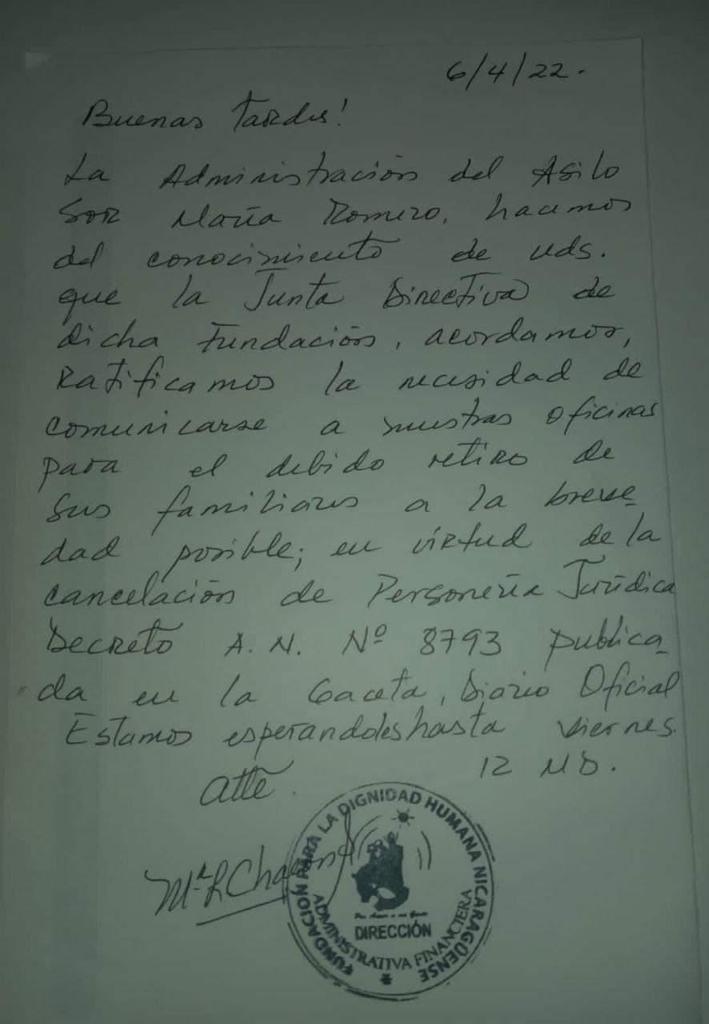 6/4/22.
Buenas Tardes!
La Administración del Asilo
Sor María Romero, hacemos
del conocimiento de uds.
que la Junta Directiva de
dicha Fundación, acordamos,
Ratificamos la necesidad de
comunicarse a nuestras oficinas
para el debido retiro de
sus familiares a la breve-
dad posible; en virtud de la
cancelación de Personería Jurídica
Decreto A.N. Nº 8793 publica-
da en la Gaceta, Diario Oficial
Estamos esperandoles hasta viernes
12 MD.
Atte.
Mª L Chamo
FUNDACION PARA LA DIGNIDAD HUMANA NICARAGÜENSE
DIRECCIÓN
ADMINISTRATIVA FINANCIERA